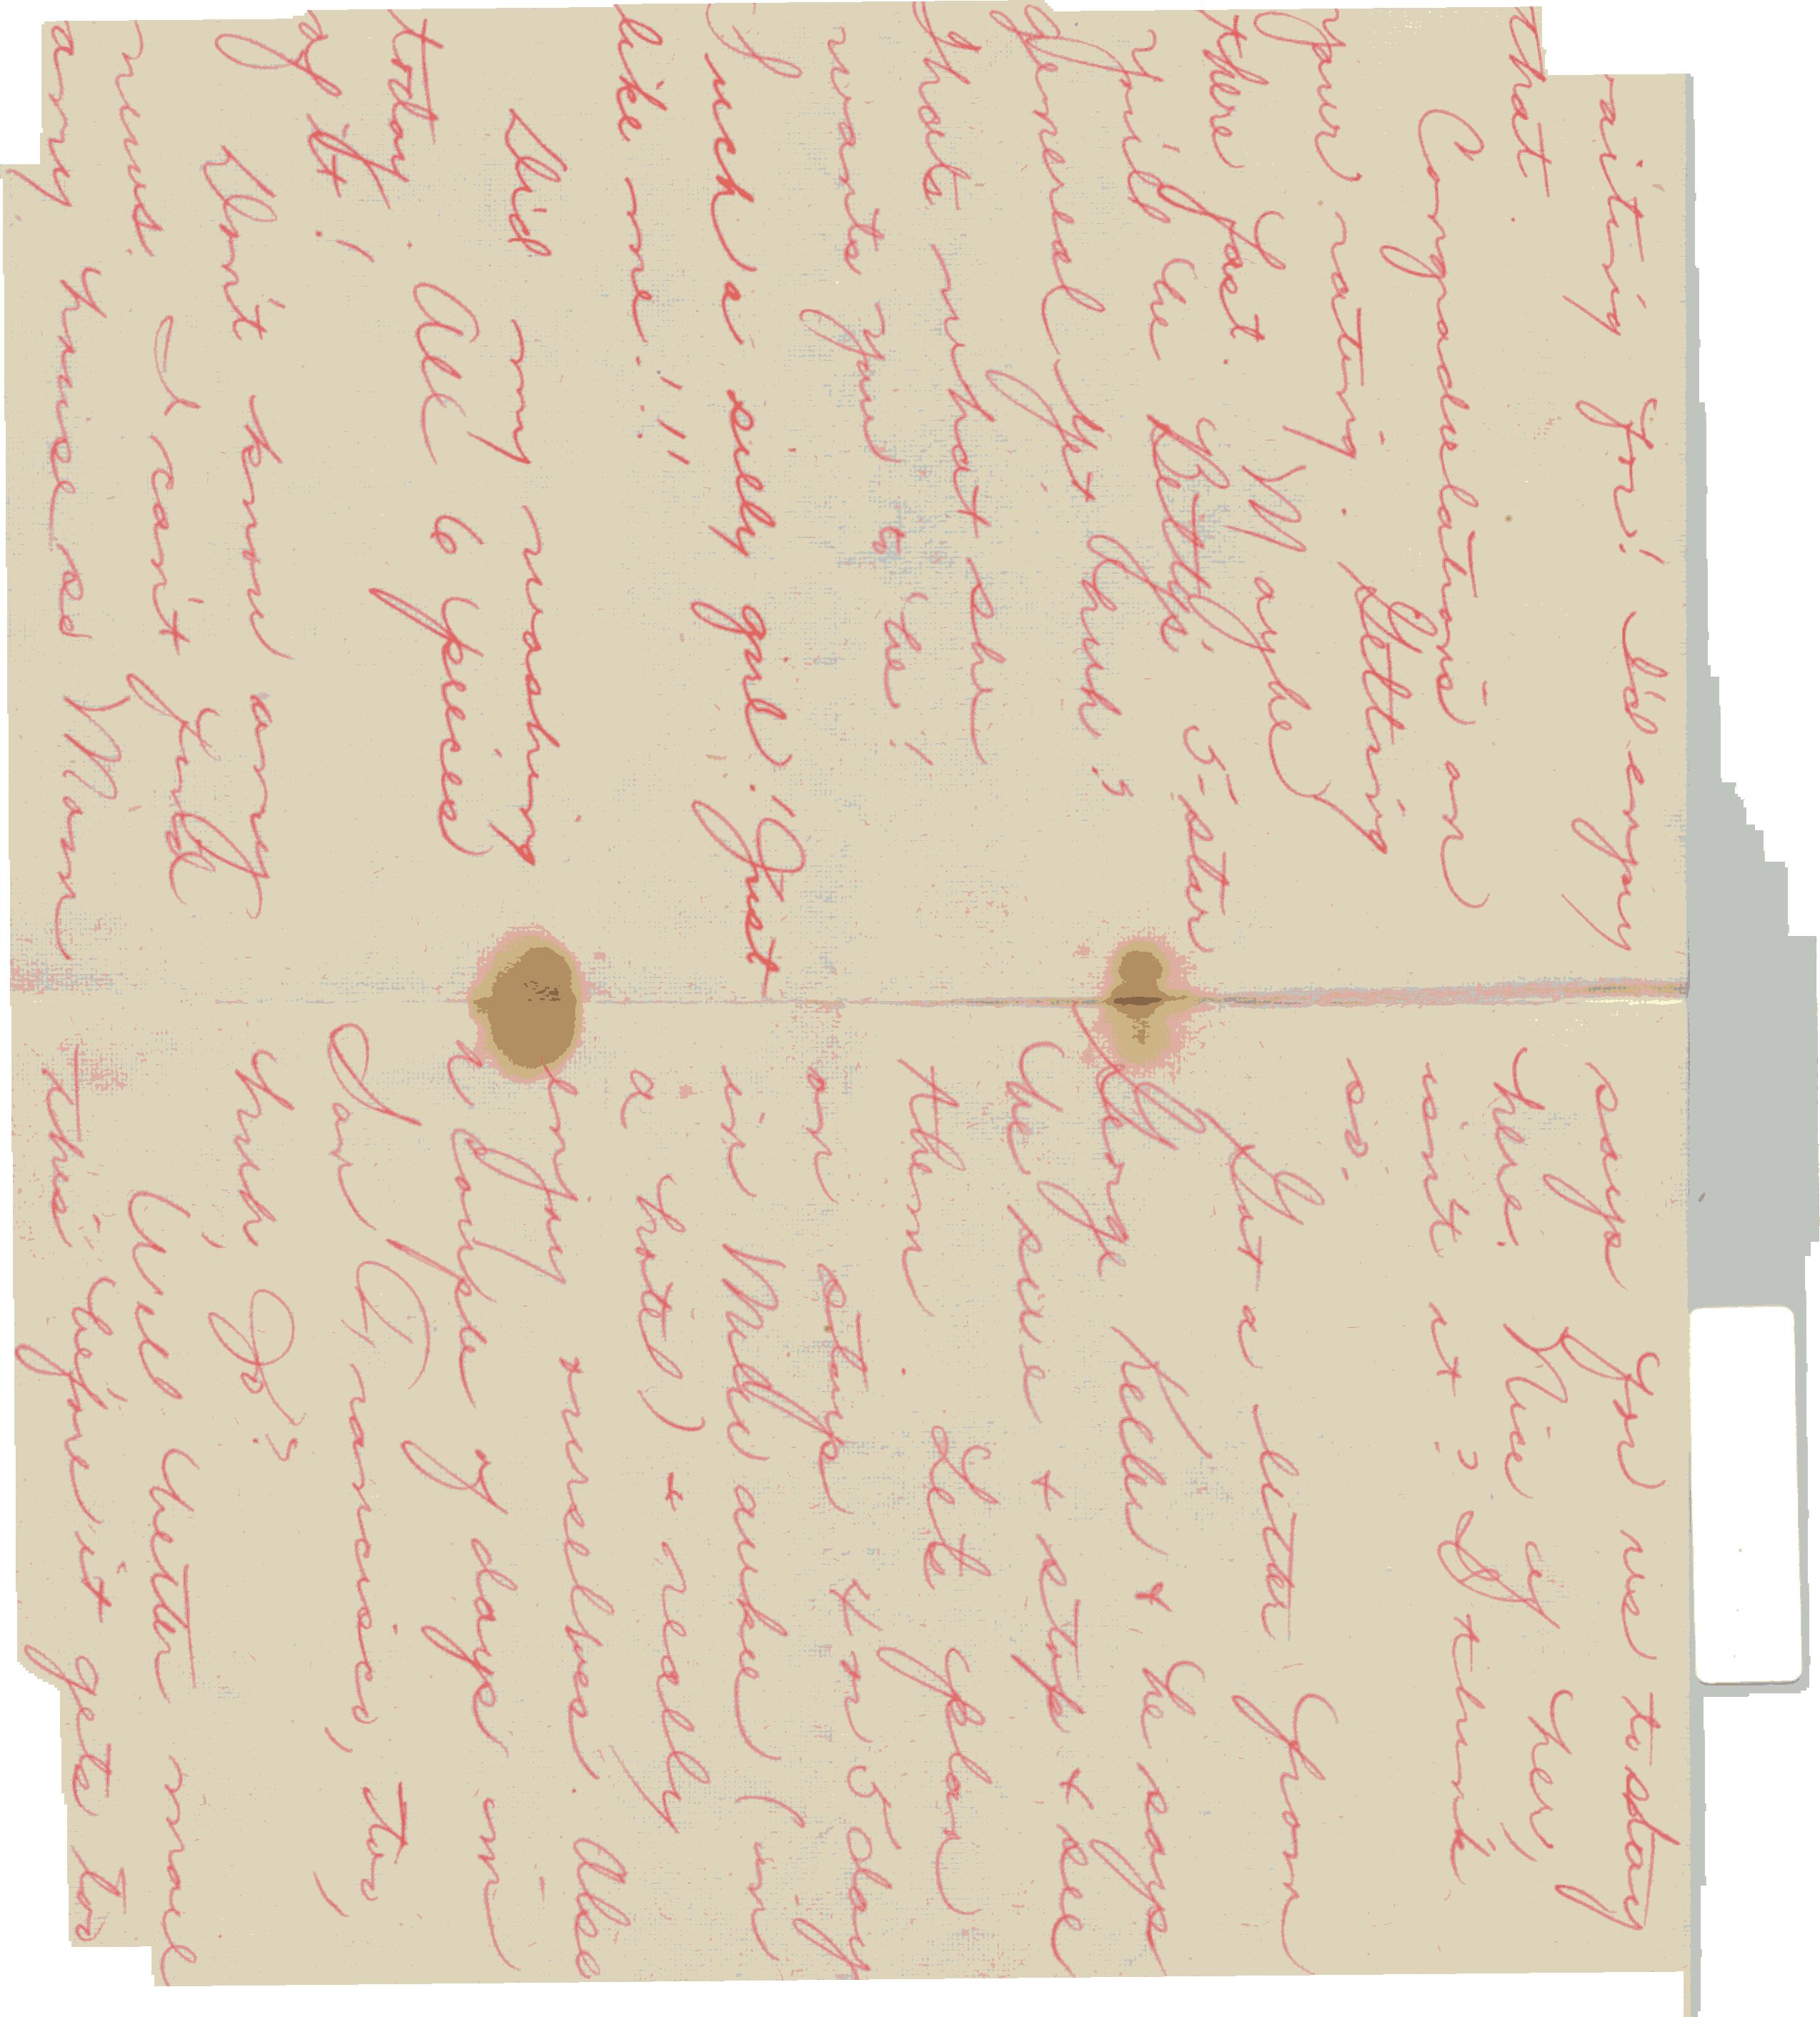 aiting for! I'd enjoy
that.
Congradulations on
your rating. Getting
there fast. Maybe
you'll be Betty's 5-star
General yet huh?
Thats what she
wants you to be!
Such a silly girl! Just
like me!!!
Did my washing
today. All 6 pieces
of it!
Don't know any
news. I can't find
any houses Mom
says for us to stay
here. Nice of her,
isn't it? I think
so.
Got a letter from
George Keller & he says
be sure & stop & see
them. Lets plan
on stops 4 or 5 days
in Milwaukee (in
a hotel) & really
enjoy ourselves. Also
a couple of days in
San Francisco, too,
huh, Jo?
Well better mail
this before it gets too